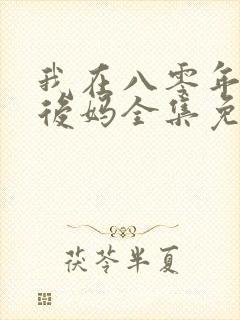 我在八零年
后妈全集免
茯苓半夏